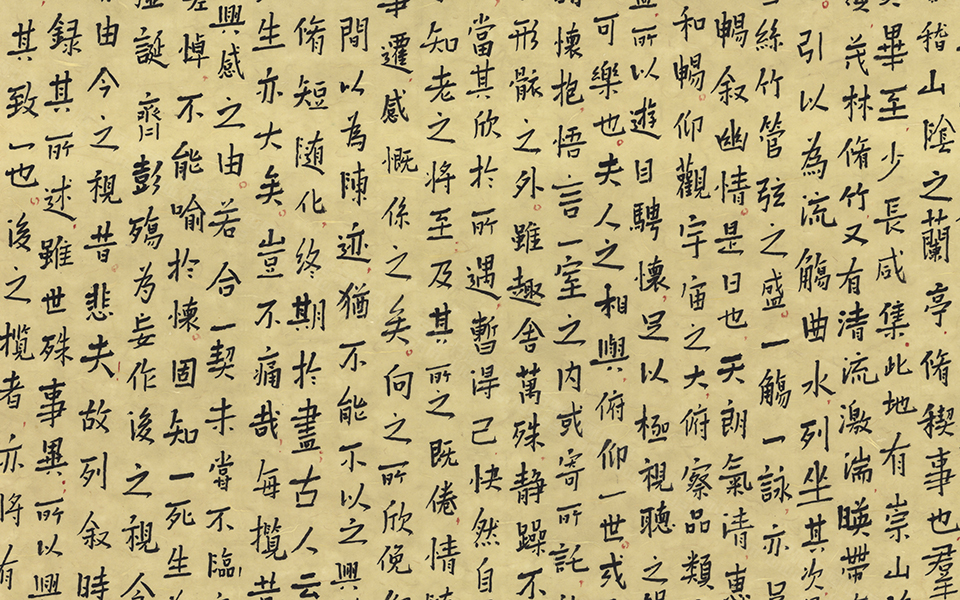 稽山陰之蘭亭脩稧事也羣
畢至少長咸集此地有崇山
茂林脩竹又有清流激湍暎帶
引以為流觴曲水列坐其次
絲竹管弦之盛一觴一詠亦
暢叙幽情是日也天朗氣清惠
和暢仰觀宇宙之大俯察品類
所以遊目騁懷足以極視聽之
可樂也夫人之相與俯仰一世或
懷抱悟言一室之内或寄所託
形骸之外雖趣舍萬殊静躁不
當其欣於所遇暫得己快然自
知老之将至及其所之既倦情
事遷感慨係之矣向之所欣俛
間以為陳迹猶不能不以之興
脩短隨化終期於盡古人云
生亦大矣豈不痛哉每攬昔
興感之由若合一契未嘗不臨
悼不能喻於懷固知一死生
誕齊彭殤為妄作後之視今
由今之視昔悲夫故列叙時
録其所述雖世殊事異所以興
其致一也後之攬者亦將有